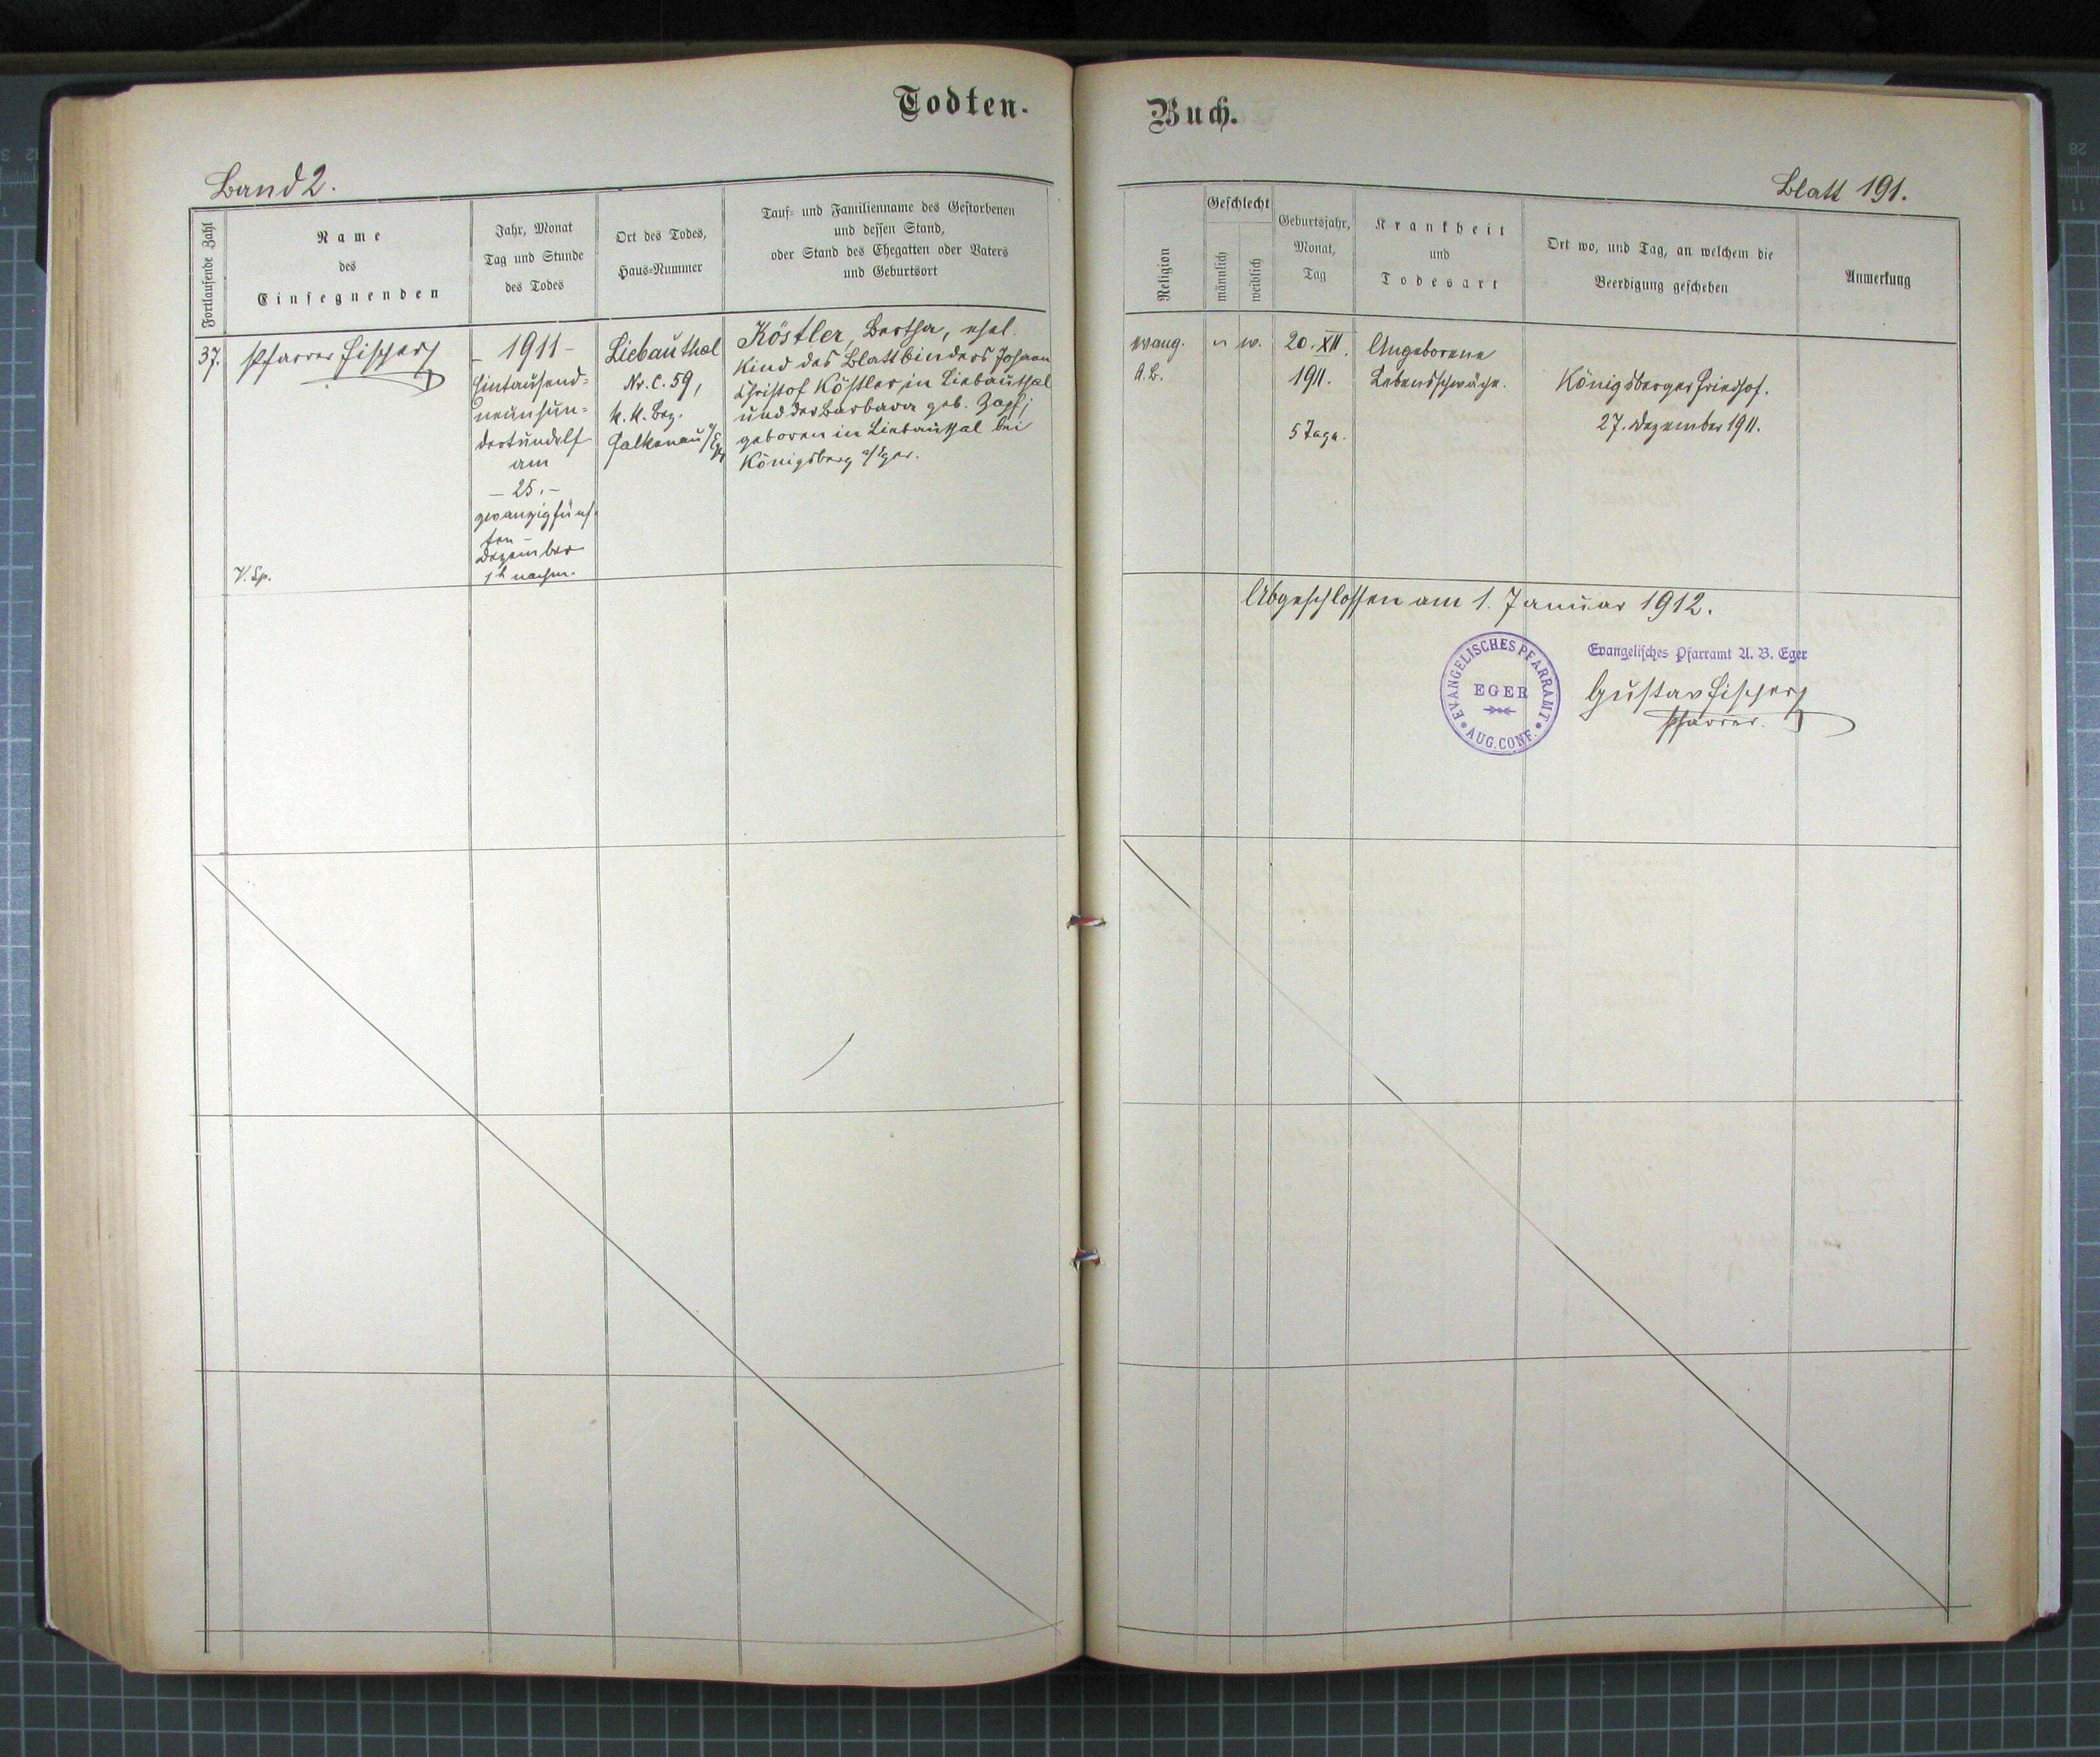 Todten-
Buch.
Band 2.
Blatt 191.
Fortlaufende Zahl
Name
des
Einsegnenden
Jahr, Monat
Tag und Stunde
des Todes
Ort des Todes,
Haus-Nummer
Tauf- und Familienname des Gestorbenen
und dessen Stand,
oder Stand des Ehegatten oder Vaters
und Geburtsort
Religion
Geschlecht
männlich
weiblich
Geburtsjahr,
Monat,
Tag
Krankheit
und
Todesart
Ort wo, und Tag, an welchem die
Beerdigung geschehen
Anmerkung
37.
Pfarrer Fischer
V. Sp.
- 1911 -
Eintausend-
neunhun-
dertundelf
am
- 25. -
zwanzigfünf-
ten -
Dezember
1 h nachm.
Liebauthal
Nr. C. 59,
k. k. Bez.
Falkenau a/Eger
Köstler, Bertha, ehel.
Kind des Blattbinders Johann
Christof Köstler in Liebauthal
und der Barbara geb. Zapf;
geboren in Liebauthal bei
Königsberg a/Eger.
evang.
A. B.
w.
20. XII.
1911.
5 Tage.
Angeborene
Lebensschwäche.
Königsberger Friedhof.
27. Dezember 1911.
Abgeschlossen am 1. Januar 1912.
EVANGELISCHES PFARRAMT
EGER
AUG. CONF.
Evangelisches Pfarramt A. B. Eger
Gustav Fischer
Pfarrer.